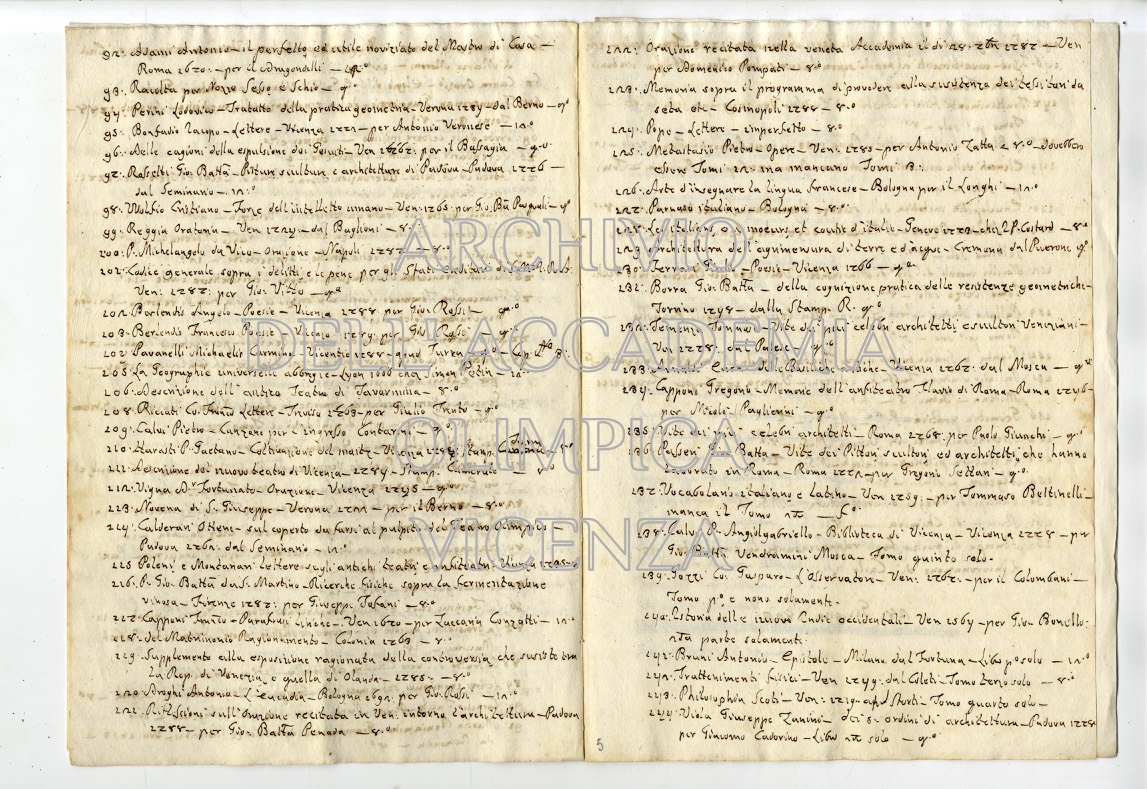 92: Adami Antonio – il perfetto ed utile noviziato del Mastro di Casa –
Roma 1670: – per il Dragondelli –
93: Racolta per Nozze Sesso e Schio – 4.o
94: Perini Lodovico – Trattato della pratica geometria – Verona 1759 – dal Berno – 4.o
95: Bonfadio Iacopo – Lettere – Vicenza – per Antonio Veronese – 12.o
96: Delle cagioni della espulsione dei Gesuiti – Ven: per il Bassaglia –
97: Rossetti Gio: Batta – Pitture sculture e architetture di Padova – Padova 1776 –
dal Seminario – 12.o
98: Wolfio Cristiano – Forze dell'intelletto umano – Ven: 1765: per Gio: Ba Pasquali –
99: Reggia Oratoria – Ven – dal Baglioni – 8.o
100: P. Michelangelo da Vico – Orazione – Napoli 1787 – 8.o
101: Codice generale sopra i delitti e le pene per gli Stati ereditari di
Ven: 1787: per Gio: Vitto –
102: Barlendis Angelo – Poesie – Vicenza 1788 per Gio: Rossi –
103: Berlendis Francesco Poesie – Vicenza per Gio: Rossi –
Pavanelli Michaelis Carmina – Vicentie 1788 – apud Turra –
105: La Geographie universelle abbregie – Lyon 1666 chez Simon – 12.o
106: Descrizione dell'antico Teatro di Tavormina – 8.o
108: Riccati Co: Lettere – Treviso 1763 – per Giulio Trento –
109: Calvi Pietro – Canzone per l'ingresso Contarini –
110: Harasti P. Gaetano – Coltivazione del maitz – Vicenza 1788: Stamp. – 8.o
111: Descrizione del nuovo teatro di Vicenza – 1789 – Stamp: Camerale –
112: Vigna Dr Fortunato – Orazione – Vicenza –
113: Novena di S: Giuseppe – Verona – per il Berno – 8.o
114: Calderari Ottone – sul coperto da farsi al pulpito del Teatro Olimpico –
Padova 1762: dal Seminario – 12.o
115 Poleni e Montanari Lettere sugli antichi teatri e anfiteatri – 1735 –
116: P. Gio: Batta da S. Martino – Ricerche fisiche sopra la fermentazione
vinosa – Firenze 1787: per Giuseppe Tofani – 8.o
117: Capponi – Parafrasi – Ven: 1670 – per Zaccaria Conzatti – 12.o
118: Del Matrimonio Ragionamento – Colonia 1763 –
119: Supplemento alla esposizione ragionata della controversia che sussiste tra
la Rep. di Venezia, e quella di Olanda – 1785: – 8.o
120: Droghi Antonio – L'eucadia – Bologna 1692: per Gio: Rossi – 12.o
121: Riflessioni sull'orazione recitata in Ven: intorno l'architettura – Padova
1788 – per Gio: Batta Penada – 8.o
122: Orazione recitata nella veneta Accademia il di 28: 1787 – Ven
per Domenico Pompeati – 8.o
123: Memoria sopra il programma di provedere alla sussistenza dei tessitori da
seta etc. – Cosmopoli 1788 – 8.o
124: Pope – Lettere – imperfetto – 8.o
125: Metastasio Pietro – Opere – Ven: 1783 – per Antonio Zatta – 8.o – dovebbero
essere Tomi 12: ma mancano Tomi 3:
126: Arte d'insegnare la lingua francese – Bologna per il Longhi – 12.o
127: Parnaso italiano – Bologna – 8.o
128: Les italiens, ou moeurs et coutumes d'italie – Geneve – chez J.P. Costard – 8.o
129 Architettura dell'agrimensura di terre e d'acque – Cremona dal Ricerone
130: Ferrari Guido – Poesie – Vicenza 1766 – 4.o
131: Borra Gio: Batta – della cognizione pratica delle resistenze geometriche –
Torino 1748 – dalla Stamp. R:
132: Temenza Tommaso – Vite dei più celebri architetti e scultori Veneziani –
Ven 1778: dal Palese –
133: Arnaldi Enea – delle Basiliche antiche – Vicenza 1767: dal Mosca –
134: Capponi Gregorio – Memorie dell'anfiteatro Flavio di Roma – Roma 1746 –
per Nicolò Pagliarini –
135: Vite dei più celebri architetti – Roma 1768: per Paolo Giunchi –
136 Passeri G. Batta – Vite dei Pittori scultori ed architetti che hanno
lavorato in Roma – Roma 1772 – per Gregorio Settari –
137: Vocabolario italiano e latino – Ven 1759: – per Tommaso Bettinelli –
manca il Tomo
138: Calvi P. Angiolgabriello – Biblioteca di Vicenza – Vicenza 1778 – per
Gio: Batta Vendramini Mosca – Tomo quinto solo –
139: Gozzi Co: Gasparo – L'osservatore – Ven: 1767: – per il Colombani –
Tomo po: e nono solamente –
140: Istoria delle nuove Indie occidentali – Ven 1564 – per Gio: Bonello:
parte solamente:
141: Bruni Antonio – Epistole – Milano dal Fortuna – Libro po solo – 12.o
142: Trattenimenti fisici – Ven: 1749. dal Coleti – Tomo terzo solo – 8.o
143: Philosophia Scoti – Ven: – Storti – Tomo quarto solo –
144: Viola Giuseppe Zanini – dei 5: ordini di architettura – Padova
per Giacomo Cadorino – Libro solo –
5
ARCHIVIO
DELL'ACCADEMIA
OLIMPICA
VICENZA